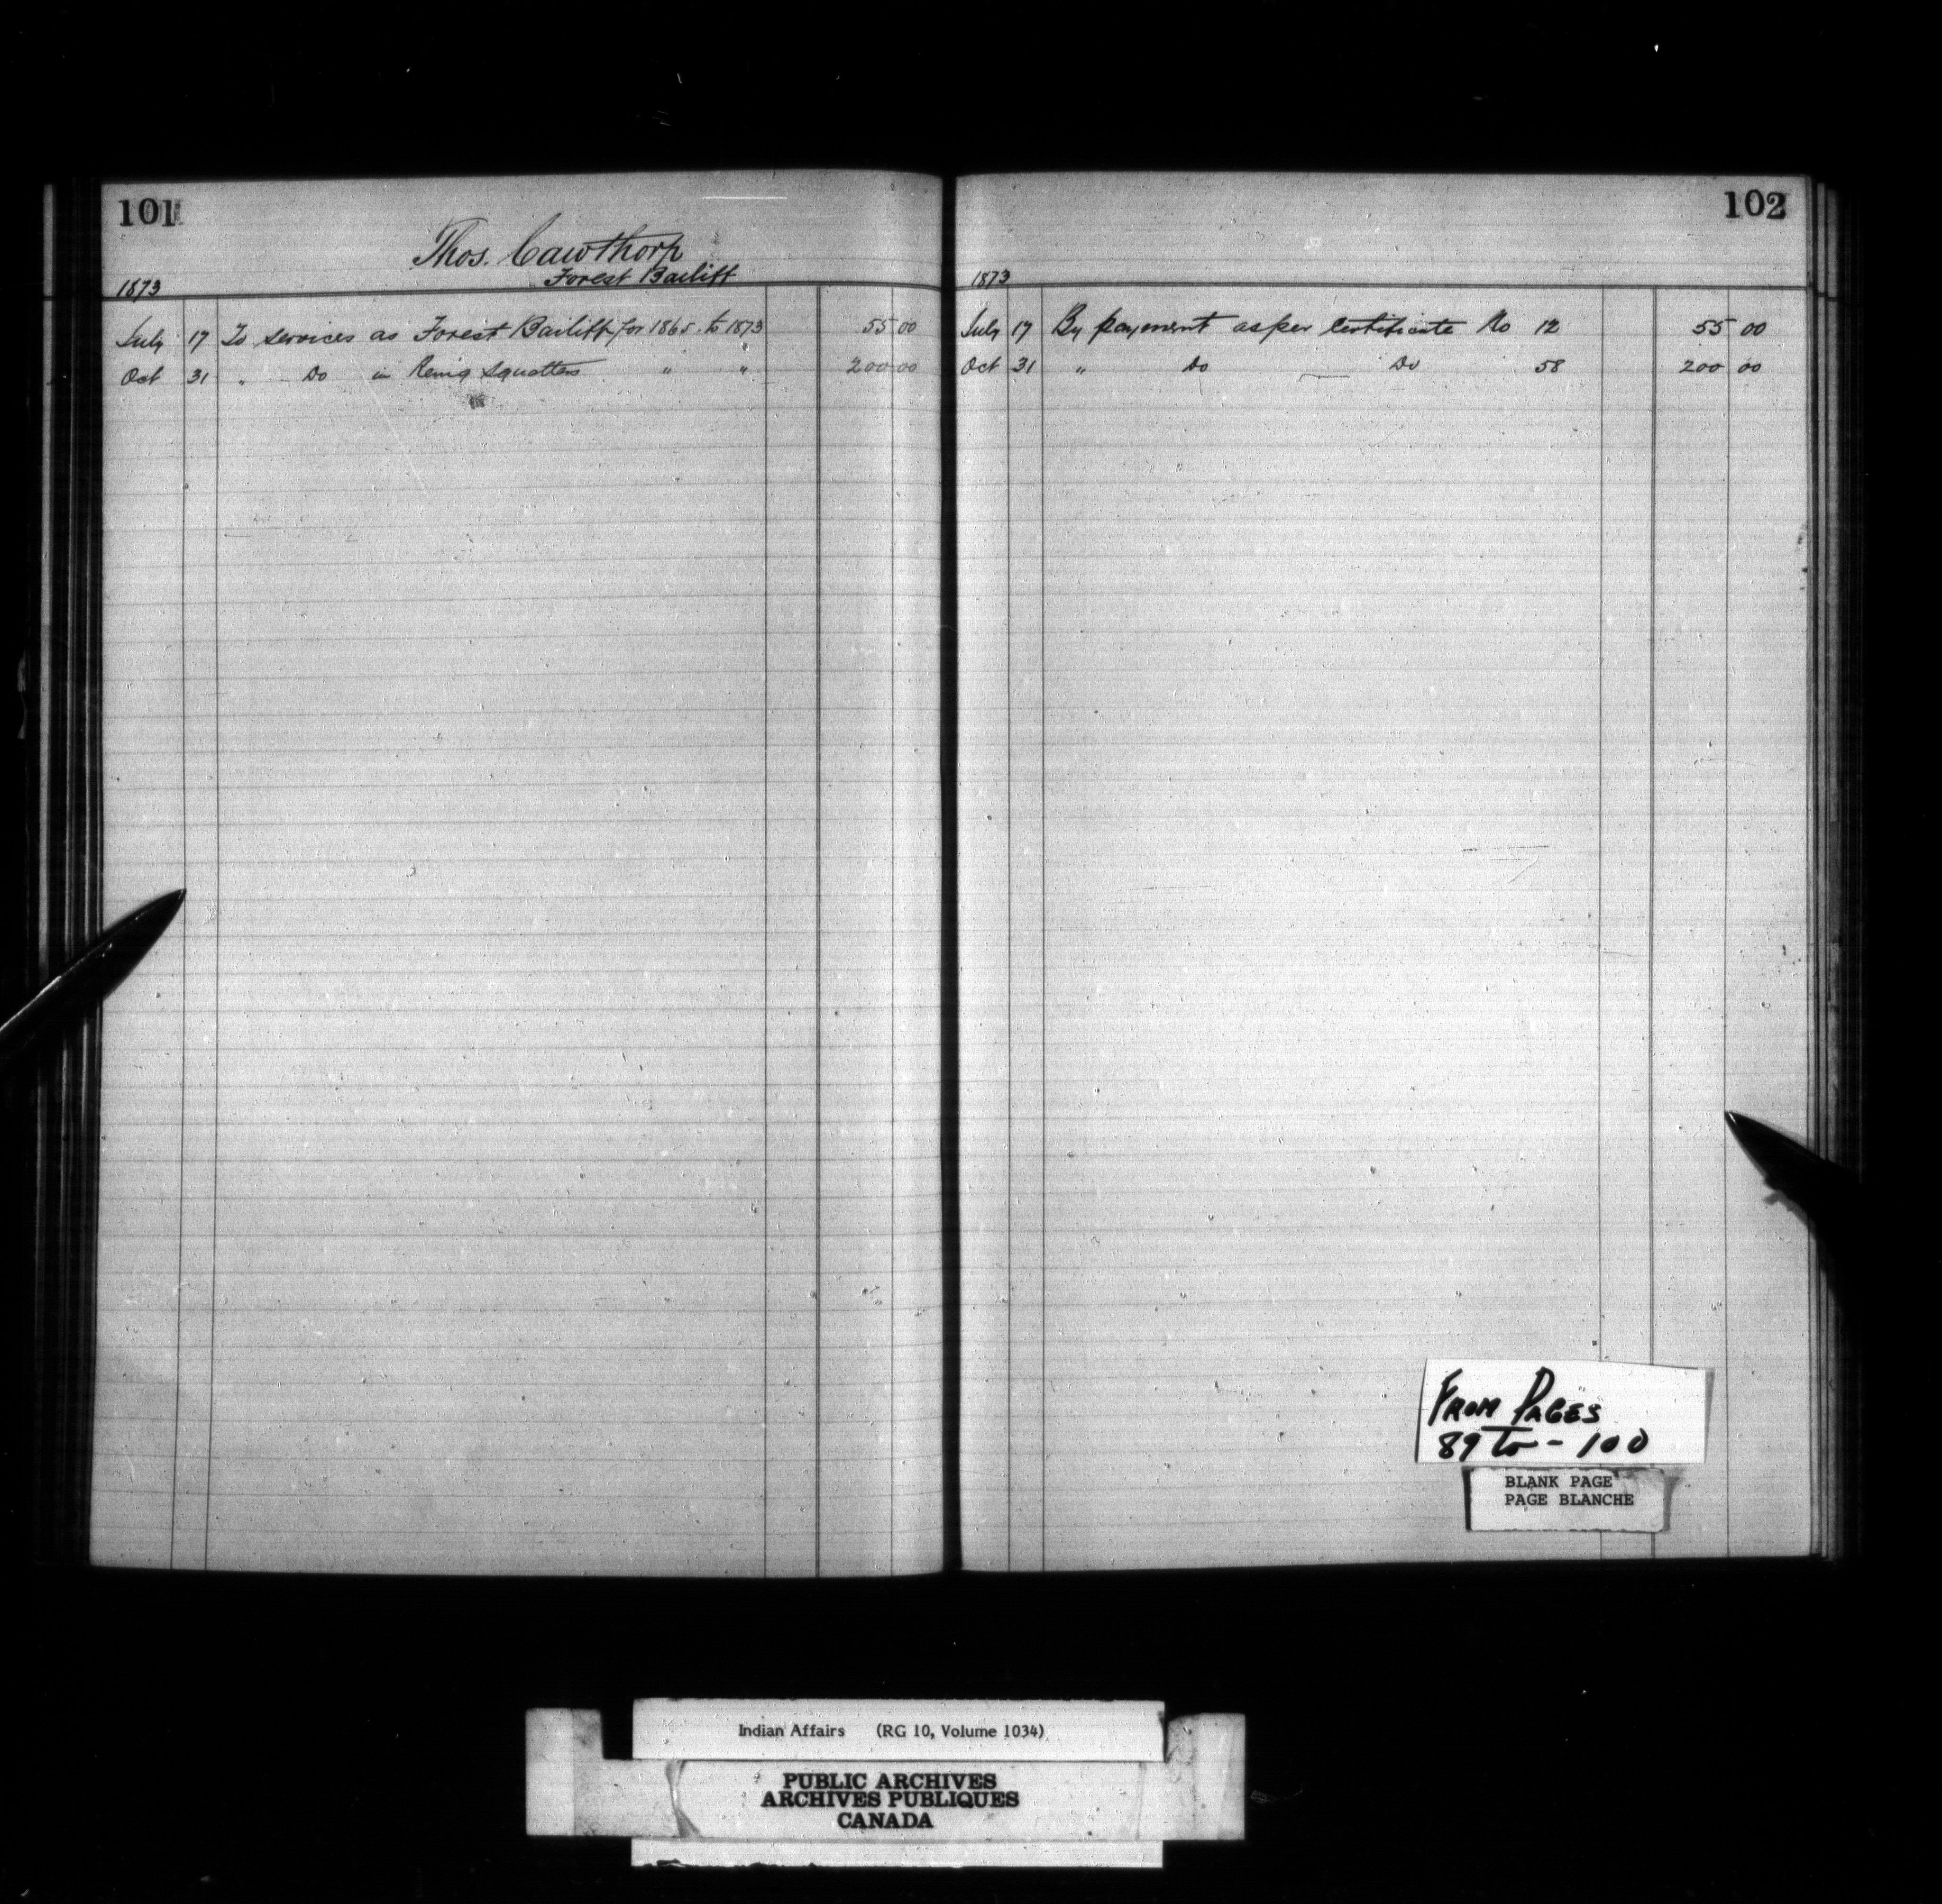 101
Thos. Cawthorp
Forest Bailiff
1873
July 17 To services as Forest Bailiff for 1865 to 1873 55 00
Oct 31 " Do in Reing squatters " " 200 00
102
1873
July 17 By payment as per Certificate No 12 55 00
Oct 31 " Do Do 58 200 00
FROM PAGES
89 to - 100
BLANK PAGE
PAGE BLANCHE
Indian Affairs (RG 10, Volume 1034)
PUBLIC ARCHIVES
ARCHIVES PUBLIQUES
CANADA